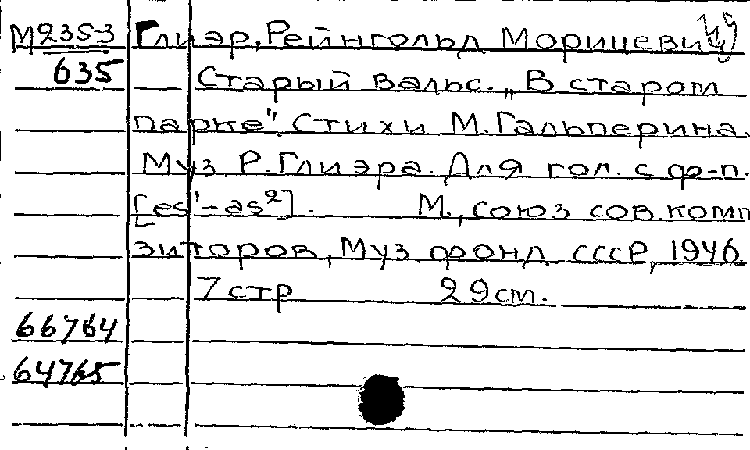 М2353 Глиэр, Рейнгольд Морицевич
635 Старый вальс. „В старом
парке". Стихи М. Гальперина.
Муз Р. Глиэра. Для гол. с ф-п.
[es¹-as²]. М., союз сов. комп
зиторов, Муз фонд СССР, 1946
7 стр 29 см.
66764
64765